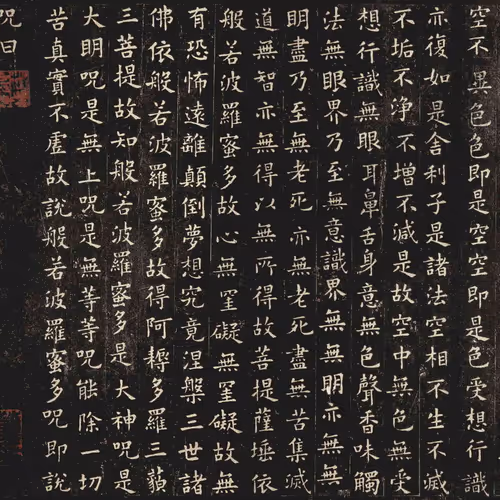 空不異色色即是空空即是色受想行識
亦復如是舍利子是諸法空相不生不滅
不垢不淨不增不減是故空中無色無受
想行識無眼耳鼻舌身意無色聲香味觸
法無眼界乃至無意識界無無明亦無無
明盡乃至無老死亦無老死盡無苦集滅
道無智亦無得以無所得故菩提薩埵依
般若波羅蜜多故心無罣礙無罣礙故無
有恐怖遠離顛倒夢想究竟涅槃三世諸
佛依般若波羅蜜多故得阿耨多羅三藐
三菩提故知般若波羅蜜多是大神咒是
大明咒是無上咒是無等等咒能除一切
苦真實不虛故說般若波羅蜜多咒即說
咒曰